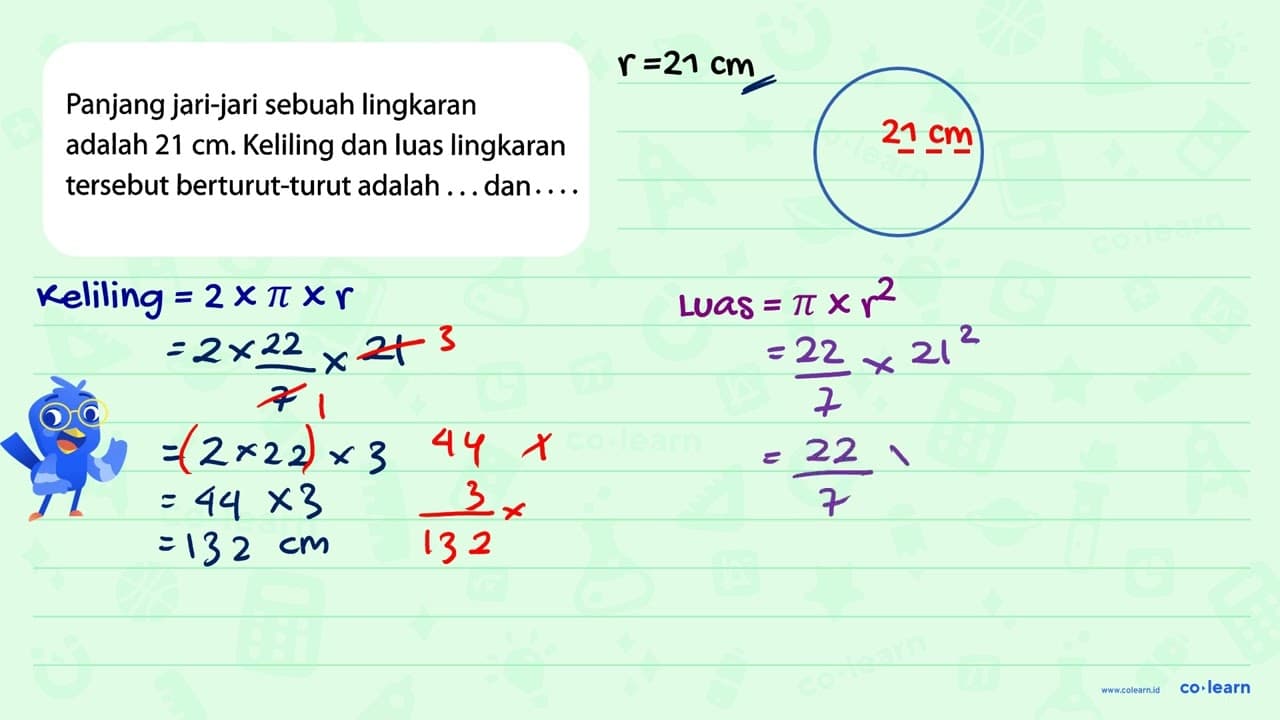 Panjang jari-jari sebuah lingkaran
adalah 21 cm. Keliling dan luas lingkaran
tersebut berturut-turut adalah . . . dan . . . .
r = 21 cm
21 cm
Keliling = 2 × π × r
= 2 × 22/7 × 21 3
1
= (2 × 22) × 3
= 44 × 3
= 132 cm
44 ×
3 ×
132
Luas = π × r²
= 22/7 × 21²
= 22/7 \
co·learn
www.colearn.id co·learn